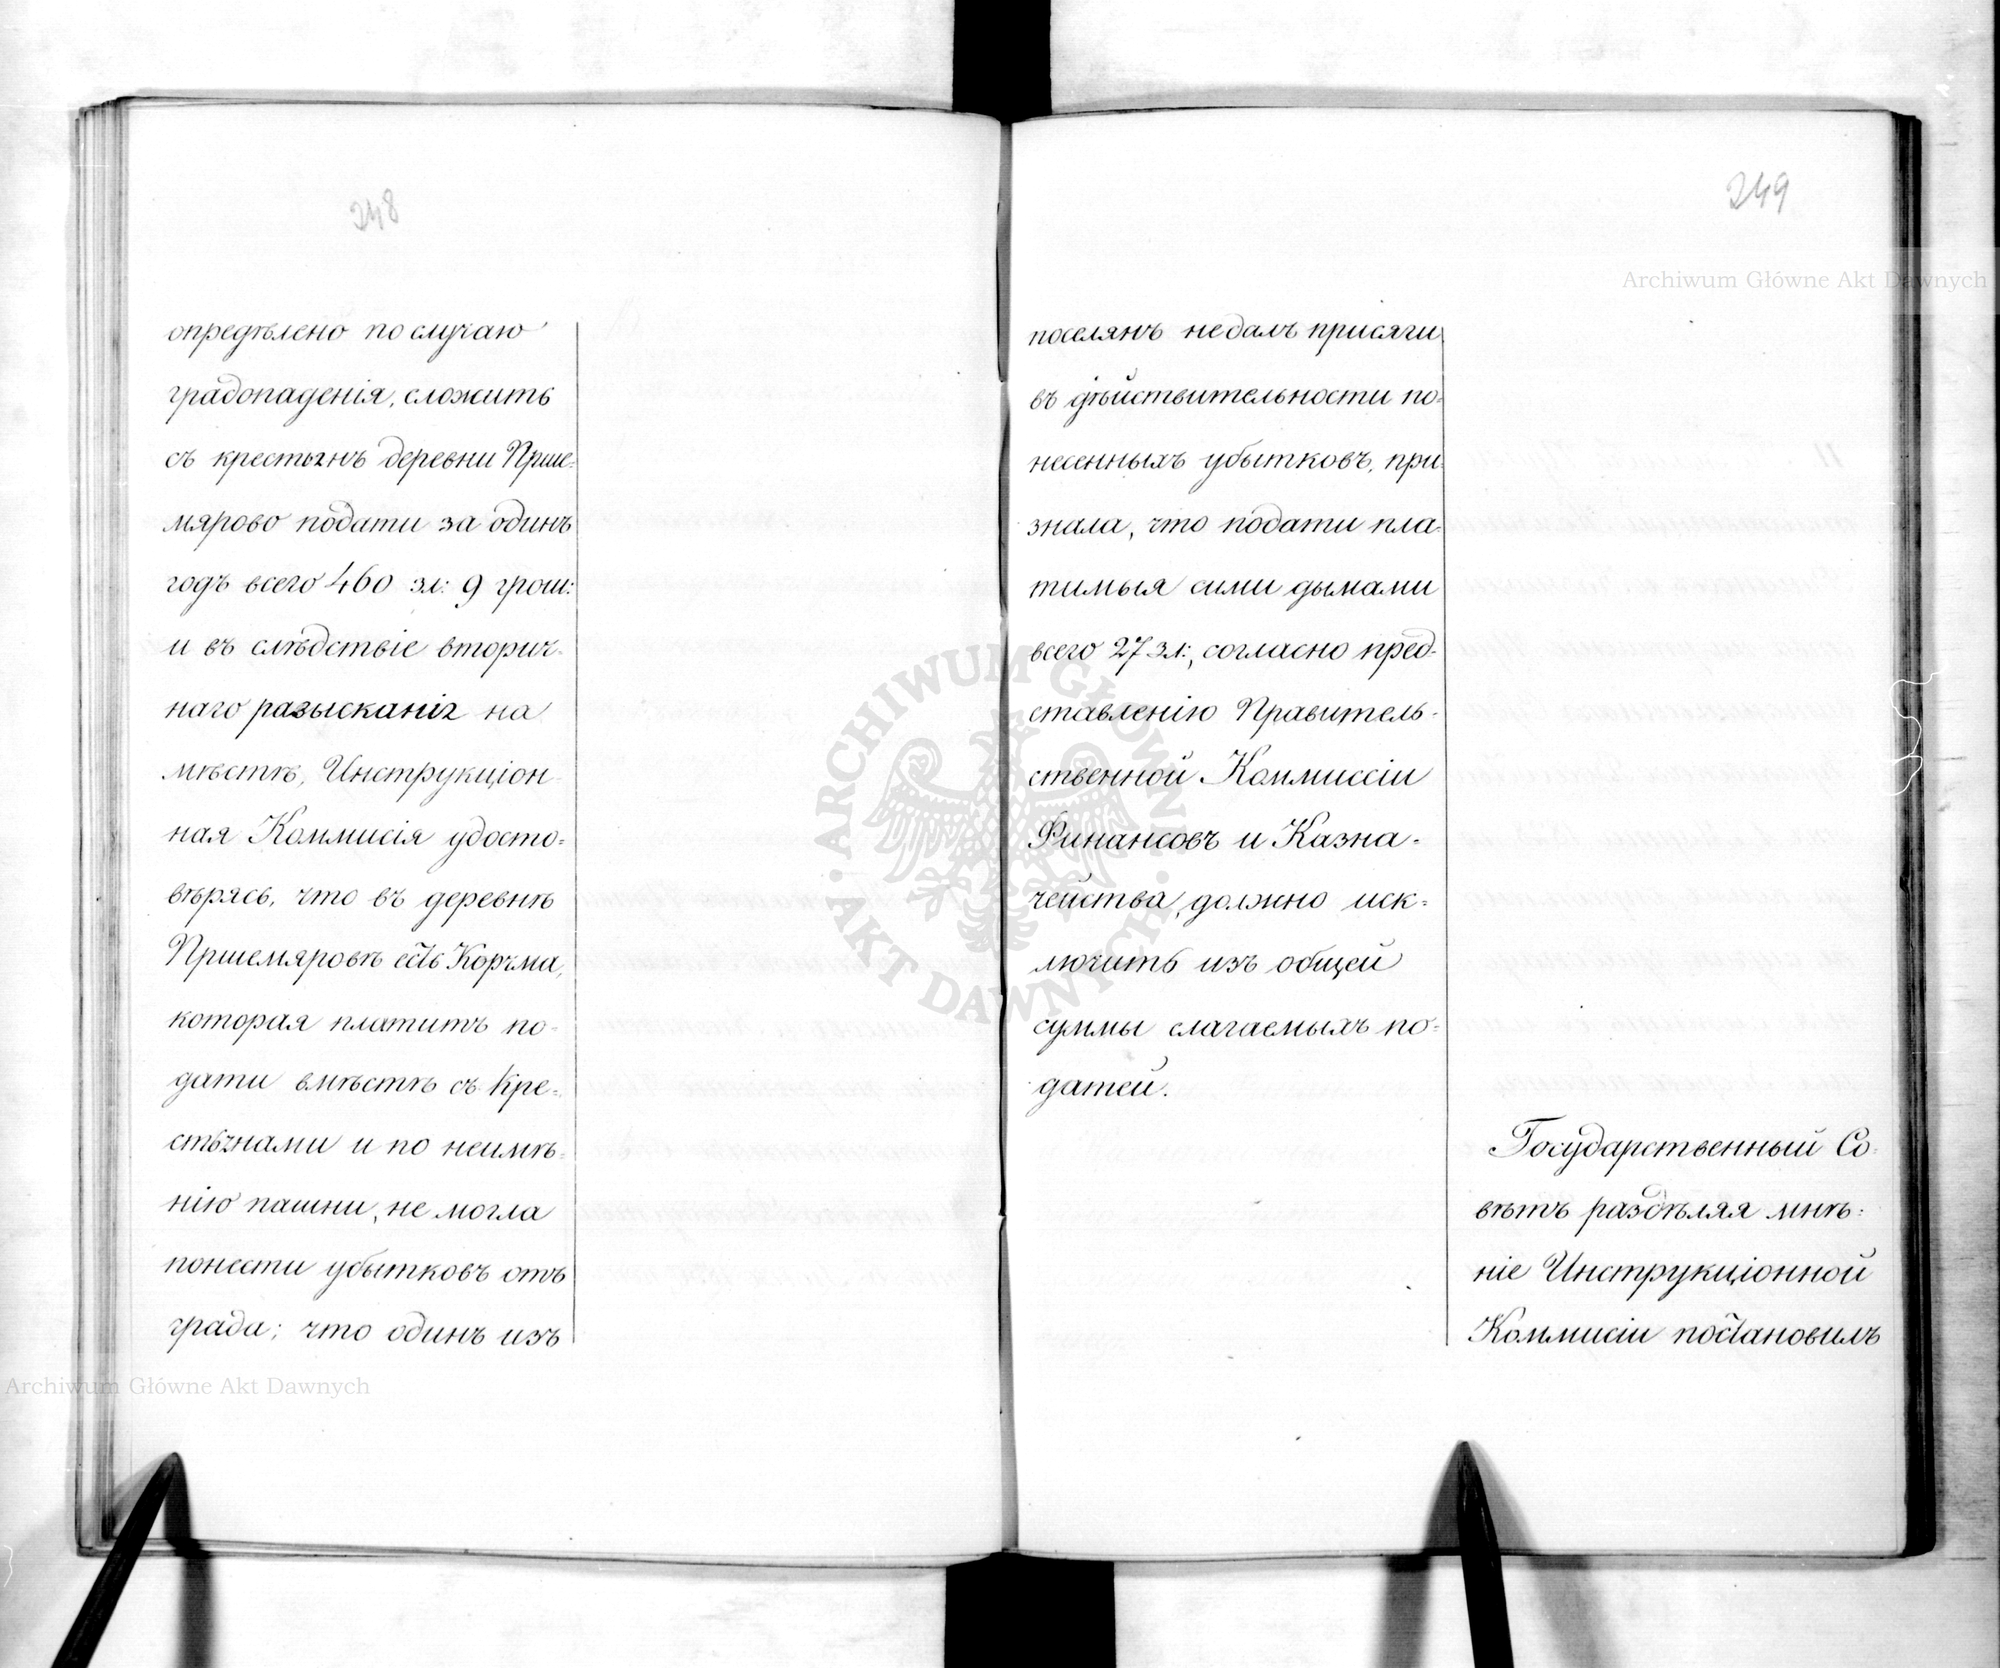 248
опредѣлено по случаю
градопаденія, сложить
съ крестьянъ деревни Пршe-
мярово подати за одинъ
годъ всего 460 зл: 9 грош:
и въ слѣдствіе вторич-
наго разысканія на
мѣстѣ, Инструкціон-
ная Коммисія удосто-
вѣрясь, что въ деревнѣ
Пршемяровѣ есть Корчма,
которая платитъ по-
дати вмѣстѣ съ Кре-
стьянами и по неимѣ-
нію пашни, не могла
понести убытковъ отъ
града; что одинъ изъ
249
поселянъ не далъ присяги
въ дѣйствительности по-
несенныхъ убытковъ, при-
знала, что подати пла-
тимыя сими дымами
всего 27 зл:, согласно пред-
ставленію Правитель-
ственной Коммиссіи
Финансовъ и Казна-
чейства, должно иск-
лючить изъ общей
суммы слагаемыхъ по-
датей.
Государственный Со-
вѣтъ раздѣляя мнѣ-
ніе Инструкціонной
Коммисіи постановилъ
Archiwum Główne Akt Dawnych
Archiwum Główne Akt Dawnych
ARCHIWUM GŁÓWNE
AKT DAWNYCH